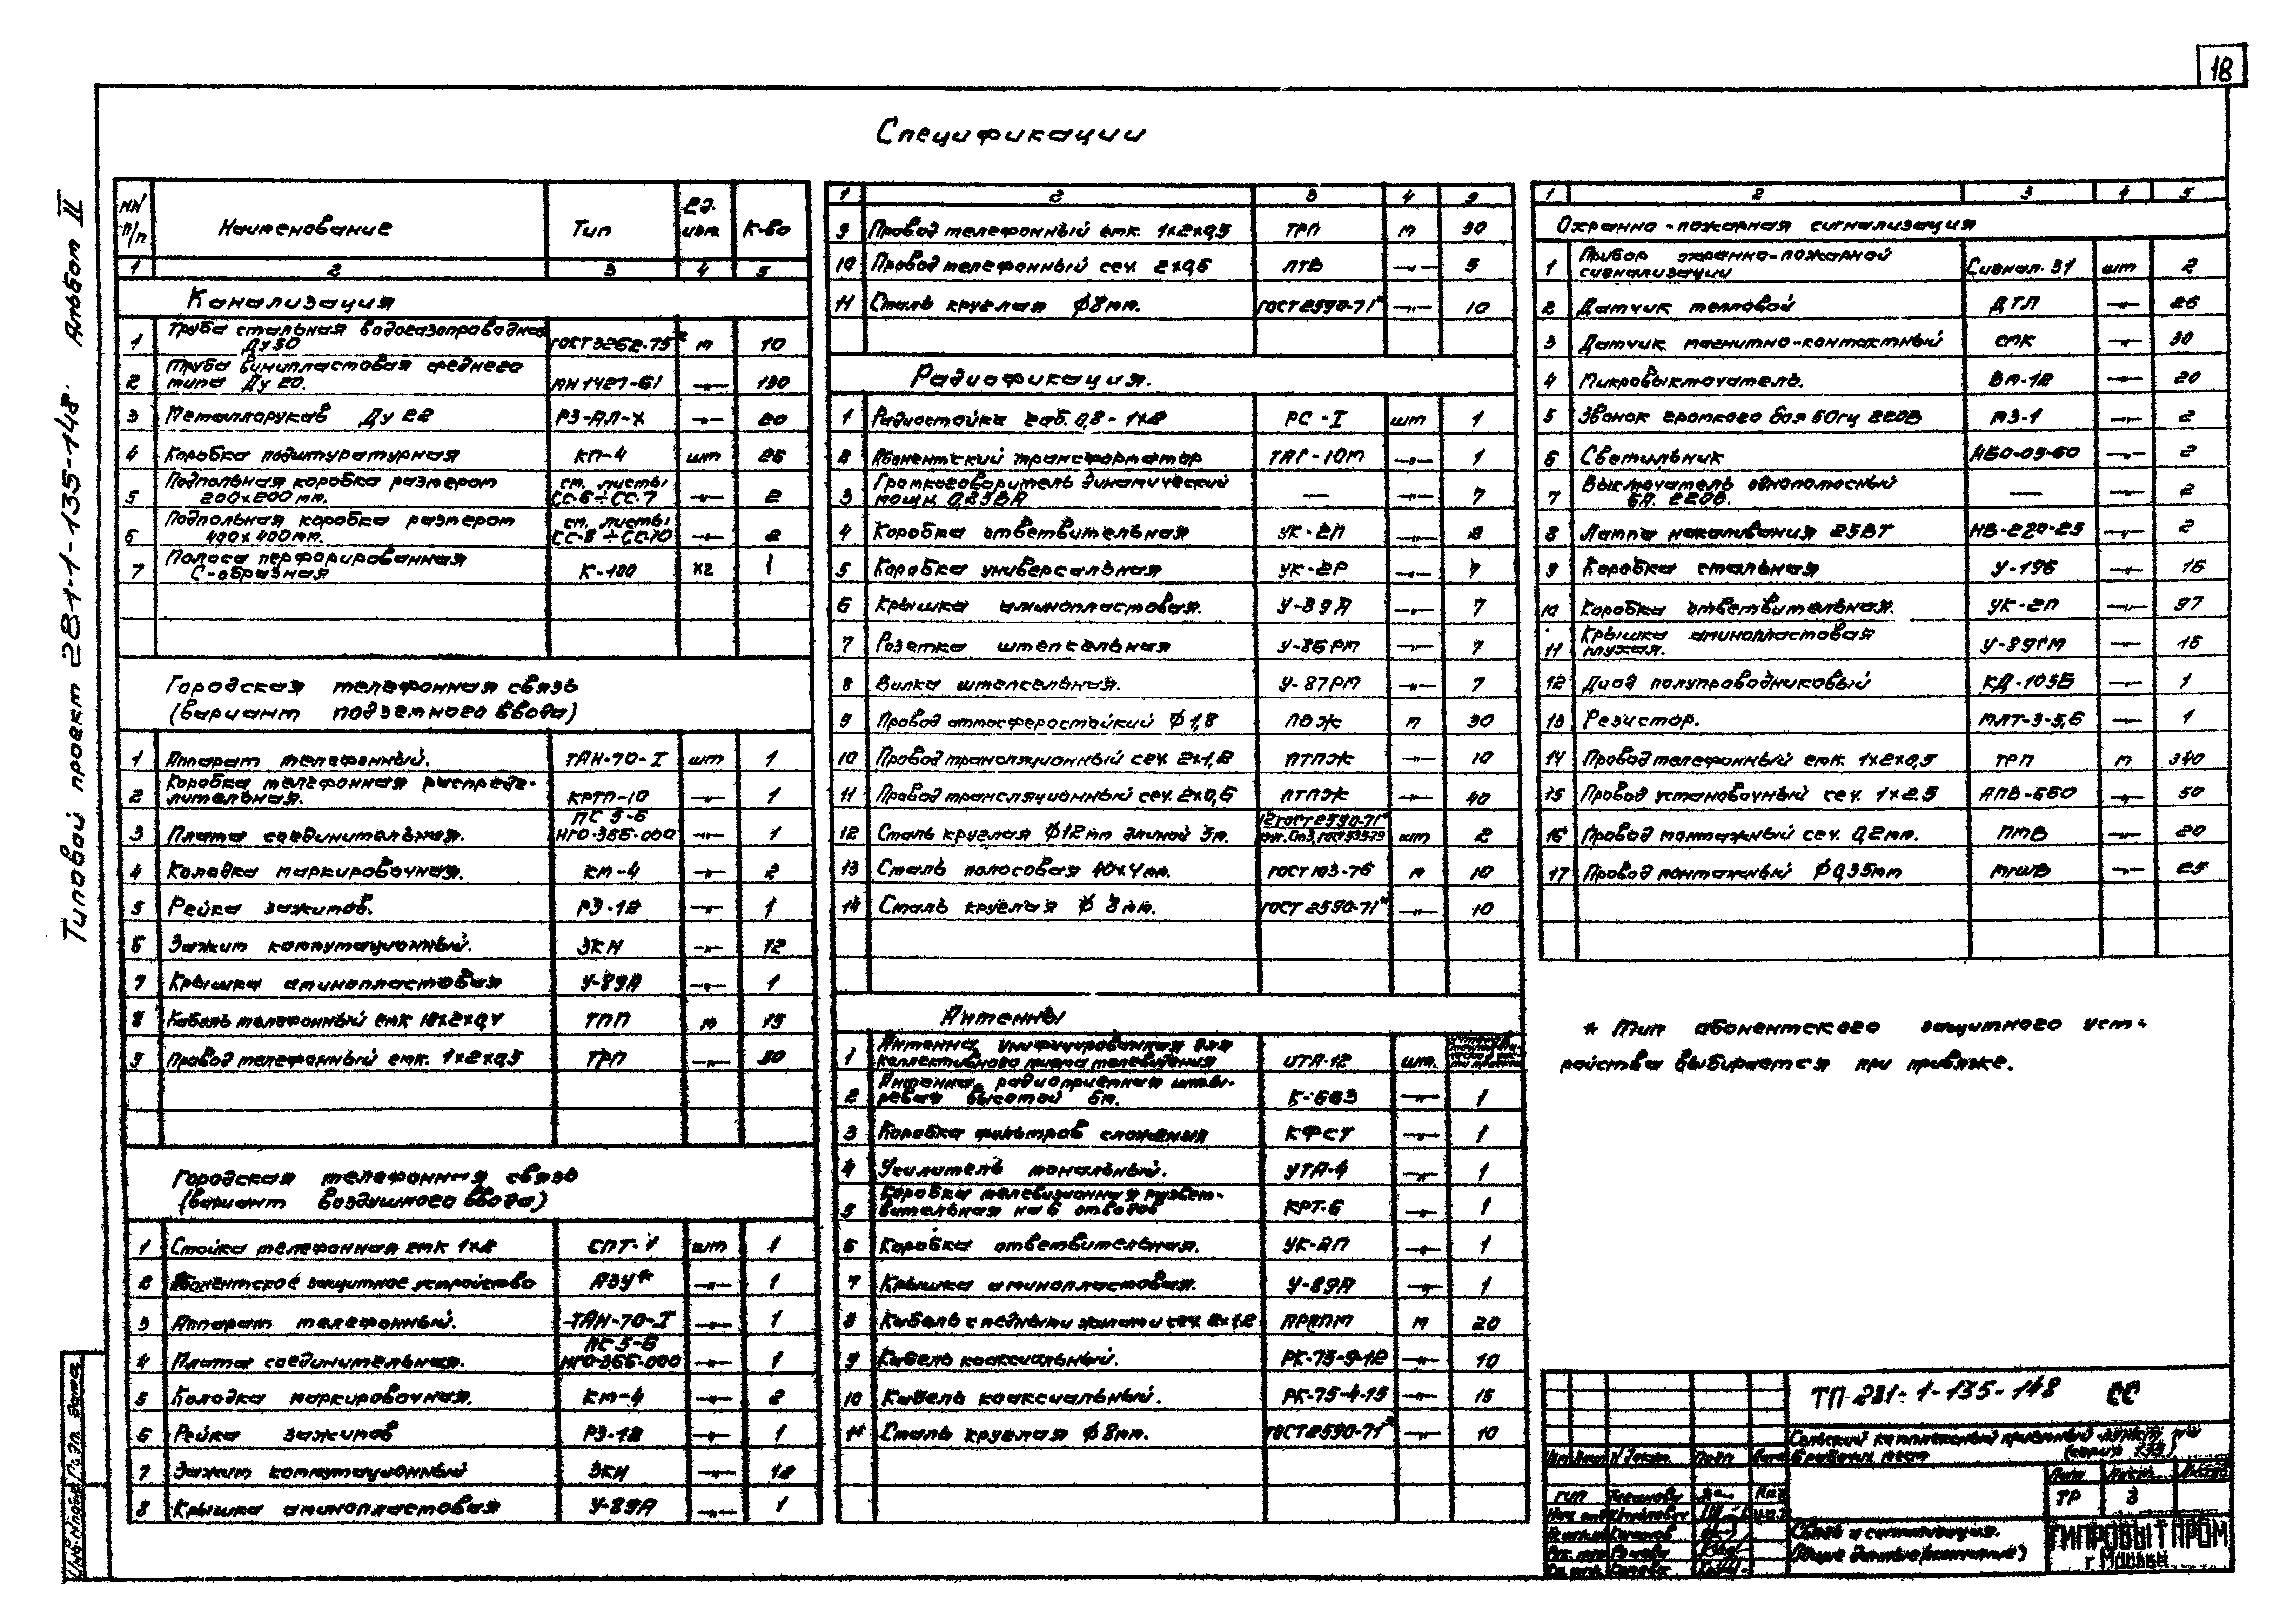 18
Типовой проект 281-1-135-148 Альбом II
Спецификации
NN п/п Наименование Тип Ед. изм К-во
1 2 3 4 5
Канализация
1 Труба стальная водогазопроводная Ду 50 ГОСТ 3262-75* м 10
2 Труба винипластовая среднего типа Ду 20. МН 1427-61 —"— 130
3 Металлорукав Ду 22 РЗ-АЛ-Х —"— 20
4 Коробка подштуратурная КП-4 шт 26
5 Подпольная коробка размером 200х200 мм. см. листы СС-6÷СС-7 —"— 2
6 Подпольная коробка размером 400х400мм. см. листы СС-8÷СС-10 —"— 2
7 Полоса перфорированная С-образная К-100 кг 1
Городская телефонная связь
(вариант подземного ввода)
1 Аппарат телефонный. ТАН-70-I шт 1
2 Коробка телефонная распределительная. КРТП-10 —"— 1
3 Плата соединительная. ПС 5-6 НГО-366-000 —"— 1
4 Колодка маркировочная. КМ-4 —"— 2
5 Рейка зажимов. РЗ-12 —"— 1
6 Зажим коммутационный. ЗКН —"— 12
7 Крышка аминопластовая У-89А —"— 1
8 Кабель телефонный емк 10х2х0,4 ТПП м 15
9 Провод телефонный емк. 1х2х0,5 ТРП —"— 30
Городская телефонная связь
(вариант воздушного ввода)
1 Стойка телефонная емк 1х2 СПТ-1 шт 1
2 Абонентское защитное устройство АЗУ* —"— 1
3 Аппарат телефонный. ТАН-70-I —"— 1
4 Плата соединительная. ПС 5-6 НГО-366-000 —"— 1
5 Колодка маркировочная. КМ-4 —"— 2
6 Рейка зажимов РЗ-12 —"— 1
7 Зажим коммутационный ЗКН —"— 12
8 Крышка аминопластовая У-89А —"— 1
1 2 3 4 5
9 Провод телефонный емк. 1х2х0,5 ТРП м 30
10 Провод телефонный сеч. 2х0,6 ЛТВ —"— 5
11 Сталь круглая ф8мм. ГОСТ 2590-71* —"— 10
Радиофикация.
1 Радиостойка габ. 0,8-1х2 РС-I шт 1
2 Абонентский трансформатор ТАГ-10М —"— 1
3 Громкоговоритель динамический мощн. 0,25ВА — —"— 7
4 Коробка ответвительная УК-2П —"— 2
5 Коробка универсальная УК-2Р —"— 7
6 Крышка аминопластовая. У-89А —"— 7
7 Розетка штепсельная У-86РМ —"— 7
8 Вилка штепсельная. У-87РМ —"— 7
9 Провод атмосферостойкий ф1,8 ПВЖ м 30
10 Провод трансляционный сеч. 2х1,2 ПТПЖ —"— 10
11 Провод трансляционный сеч. 2х0,6 ПТПЖ —"— 40
12 Сталь круглая ф12мм длиной 5м. 12 ГОСТ 2590-71* Ст3, ГОСТ 535-79 шт 2
13 Сталь полосовая 40х4мм. ГОСТ 103-76 м 10
14 Сталь круглая ф 8мм. ГОСТ 2590-71* —"— 10
Антенны
1 Антенна унифицированная для коллективного приема телевидения ИТА-12 шт.
2 Антенна радиоприемная штыревая высотой 6м. К-663 —"— 1
3 Коробка фильтров сложения КФСТ —"— 1
4 Усилитель канальный. УТА-4 —"— 1
5 Коробка телевизионная развет-вительная на 6 отводов КРТ-6 —"— 1
6 Коробка ответвительная. УК-2П —"— 1
7 Крышка аминопластовая. У-89А —"— 1
8 Кабель с медными жилами сеч. 2х1,2 ПРППМ м 20
9 Кабель коаксиальный. РК-75-9-12 —"— 10
10 Кабель коаксиальный. РК-75-4-15 —"— 15
11 Сталь круглая ф8мм. ГОСТ 2590-71* —"— 10
1 2 3 4 5
Охранно-пожарная сигнализация
1 Прибор охранно-пожарной сигнализации Сигнал-31 шт 2
2 Датчик тепловой ДТЛ —"— 26
3 Датчик магнитно-контактный СМК —"— 30
4 Микровыключатель. ВМ-12 —"— 20
5 Звонок громкого боя 50гц 220В МЗ-1 —"— 2
6 Светильник НБО-05-60 —"— 2
7 Выключатель однополюсный 6А. 220В. — —"— 2
8 Лампа накаливания 25ВТ НВ-220-25 —"— 2
9 Коробка стальная У-196 —"— 16
10 Коробка ответвительная. УК-2П —"— 97
11 Крышка аминопластовая глухая. У-89ГМ —"— 16
12 Диод полупроводниковый КД-105Б —"— 1
13 Резистор. МЛТ-3-5,6 —"— 1
14 Провод телефонный емк. 1х2х0,5 ТРП м 340
15 Провод установочный сеч. 1х2.5 АПВ-660 —"— 50
16 Провод монтажный сеч. 0,2мм. ПМВ —"— 20
17 Провод монтажный ф0,35мм МГШВ —"— 25
* Тип абонентского защитного уст-
ройства выбирается при привязке.
ТП 281-1-135-148 СС
Сельский комплексный приемный пункт на
6 рабочих мест
ГИП
ТР 3
Связь и сигнализация.
Общие данные (окончание)
ГИПРОБЫТПРОМ
г Москва
Инв. N подл. Подп. дата